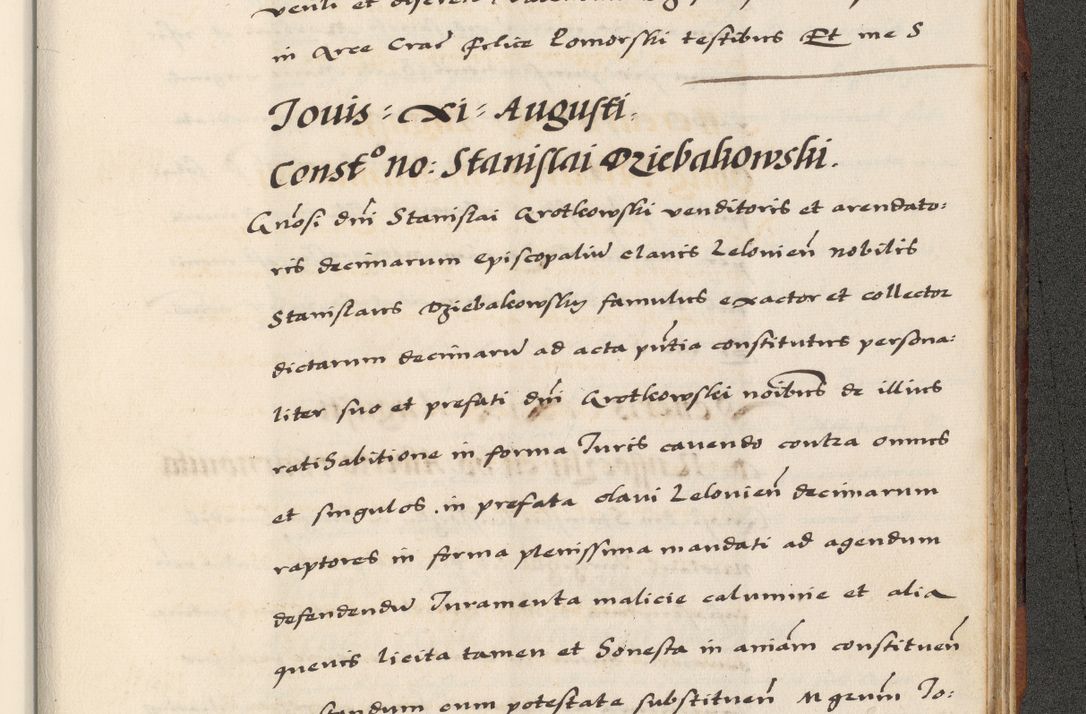 venli et discreti
in Arce Craɔ Felice Pomorski testibus Et me S
Jouis : xi : Augusti.
Constᵒ no: Stanislai Dziebakowski.
Gnosi dni Stanislai Grotkowski venditoris et arendato:
ris decimarum episcopaliū clauis Leloviеn nobilis
Stanislaus Dziebakowsky famulus exactor et collector
dictarum decimarū ad acta pntia constitutus persona:
liter suo et prefati dni Grotkowski noibus de illius
ratihabitione in forma Iuris cavendo contra omnes
et singulos in prefata clavi Lelovien decimarum
raptores in forma plenissima mandati ad agendum
defendendū Iuramenta malicie calumnie et alia
quevis licita tamen et honesta in aniam constituen
standum cum potestate substituen Mgrum Jo: